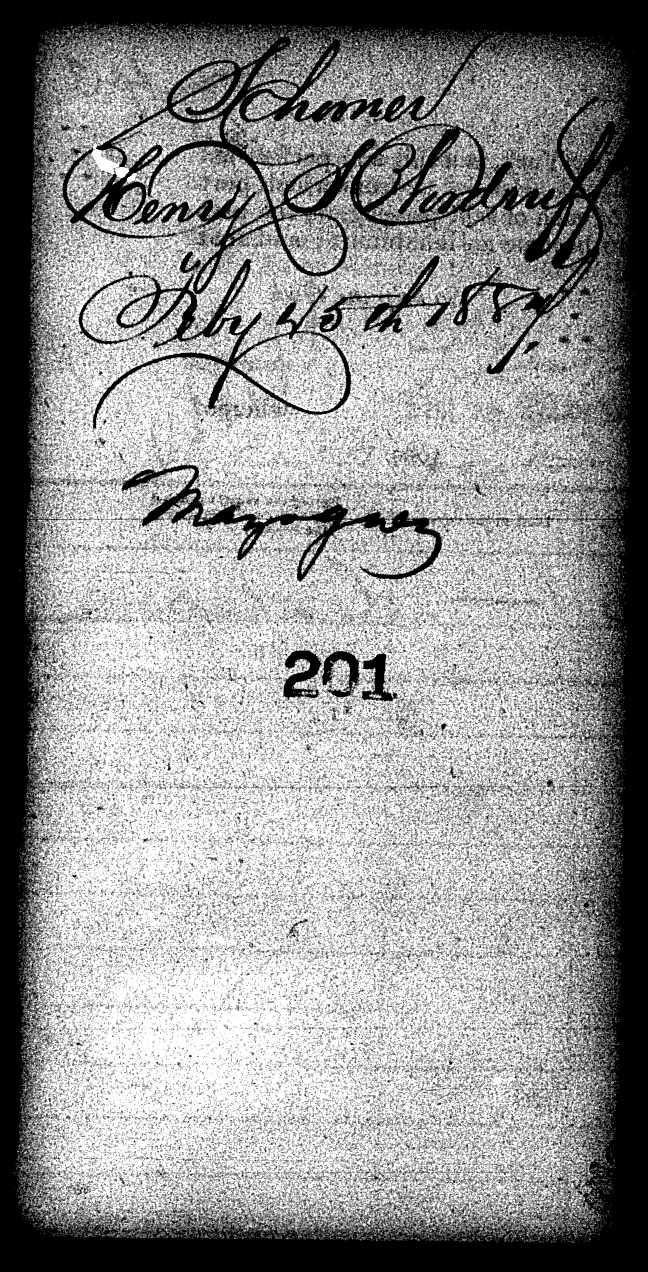 Schooner
Henry S Woodruff
of
Feby 25th 1887
Mayaguez
201